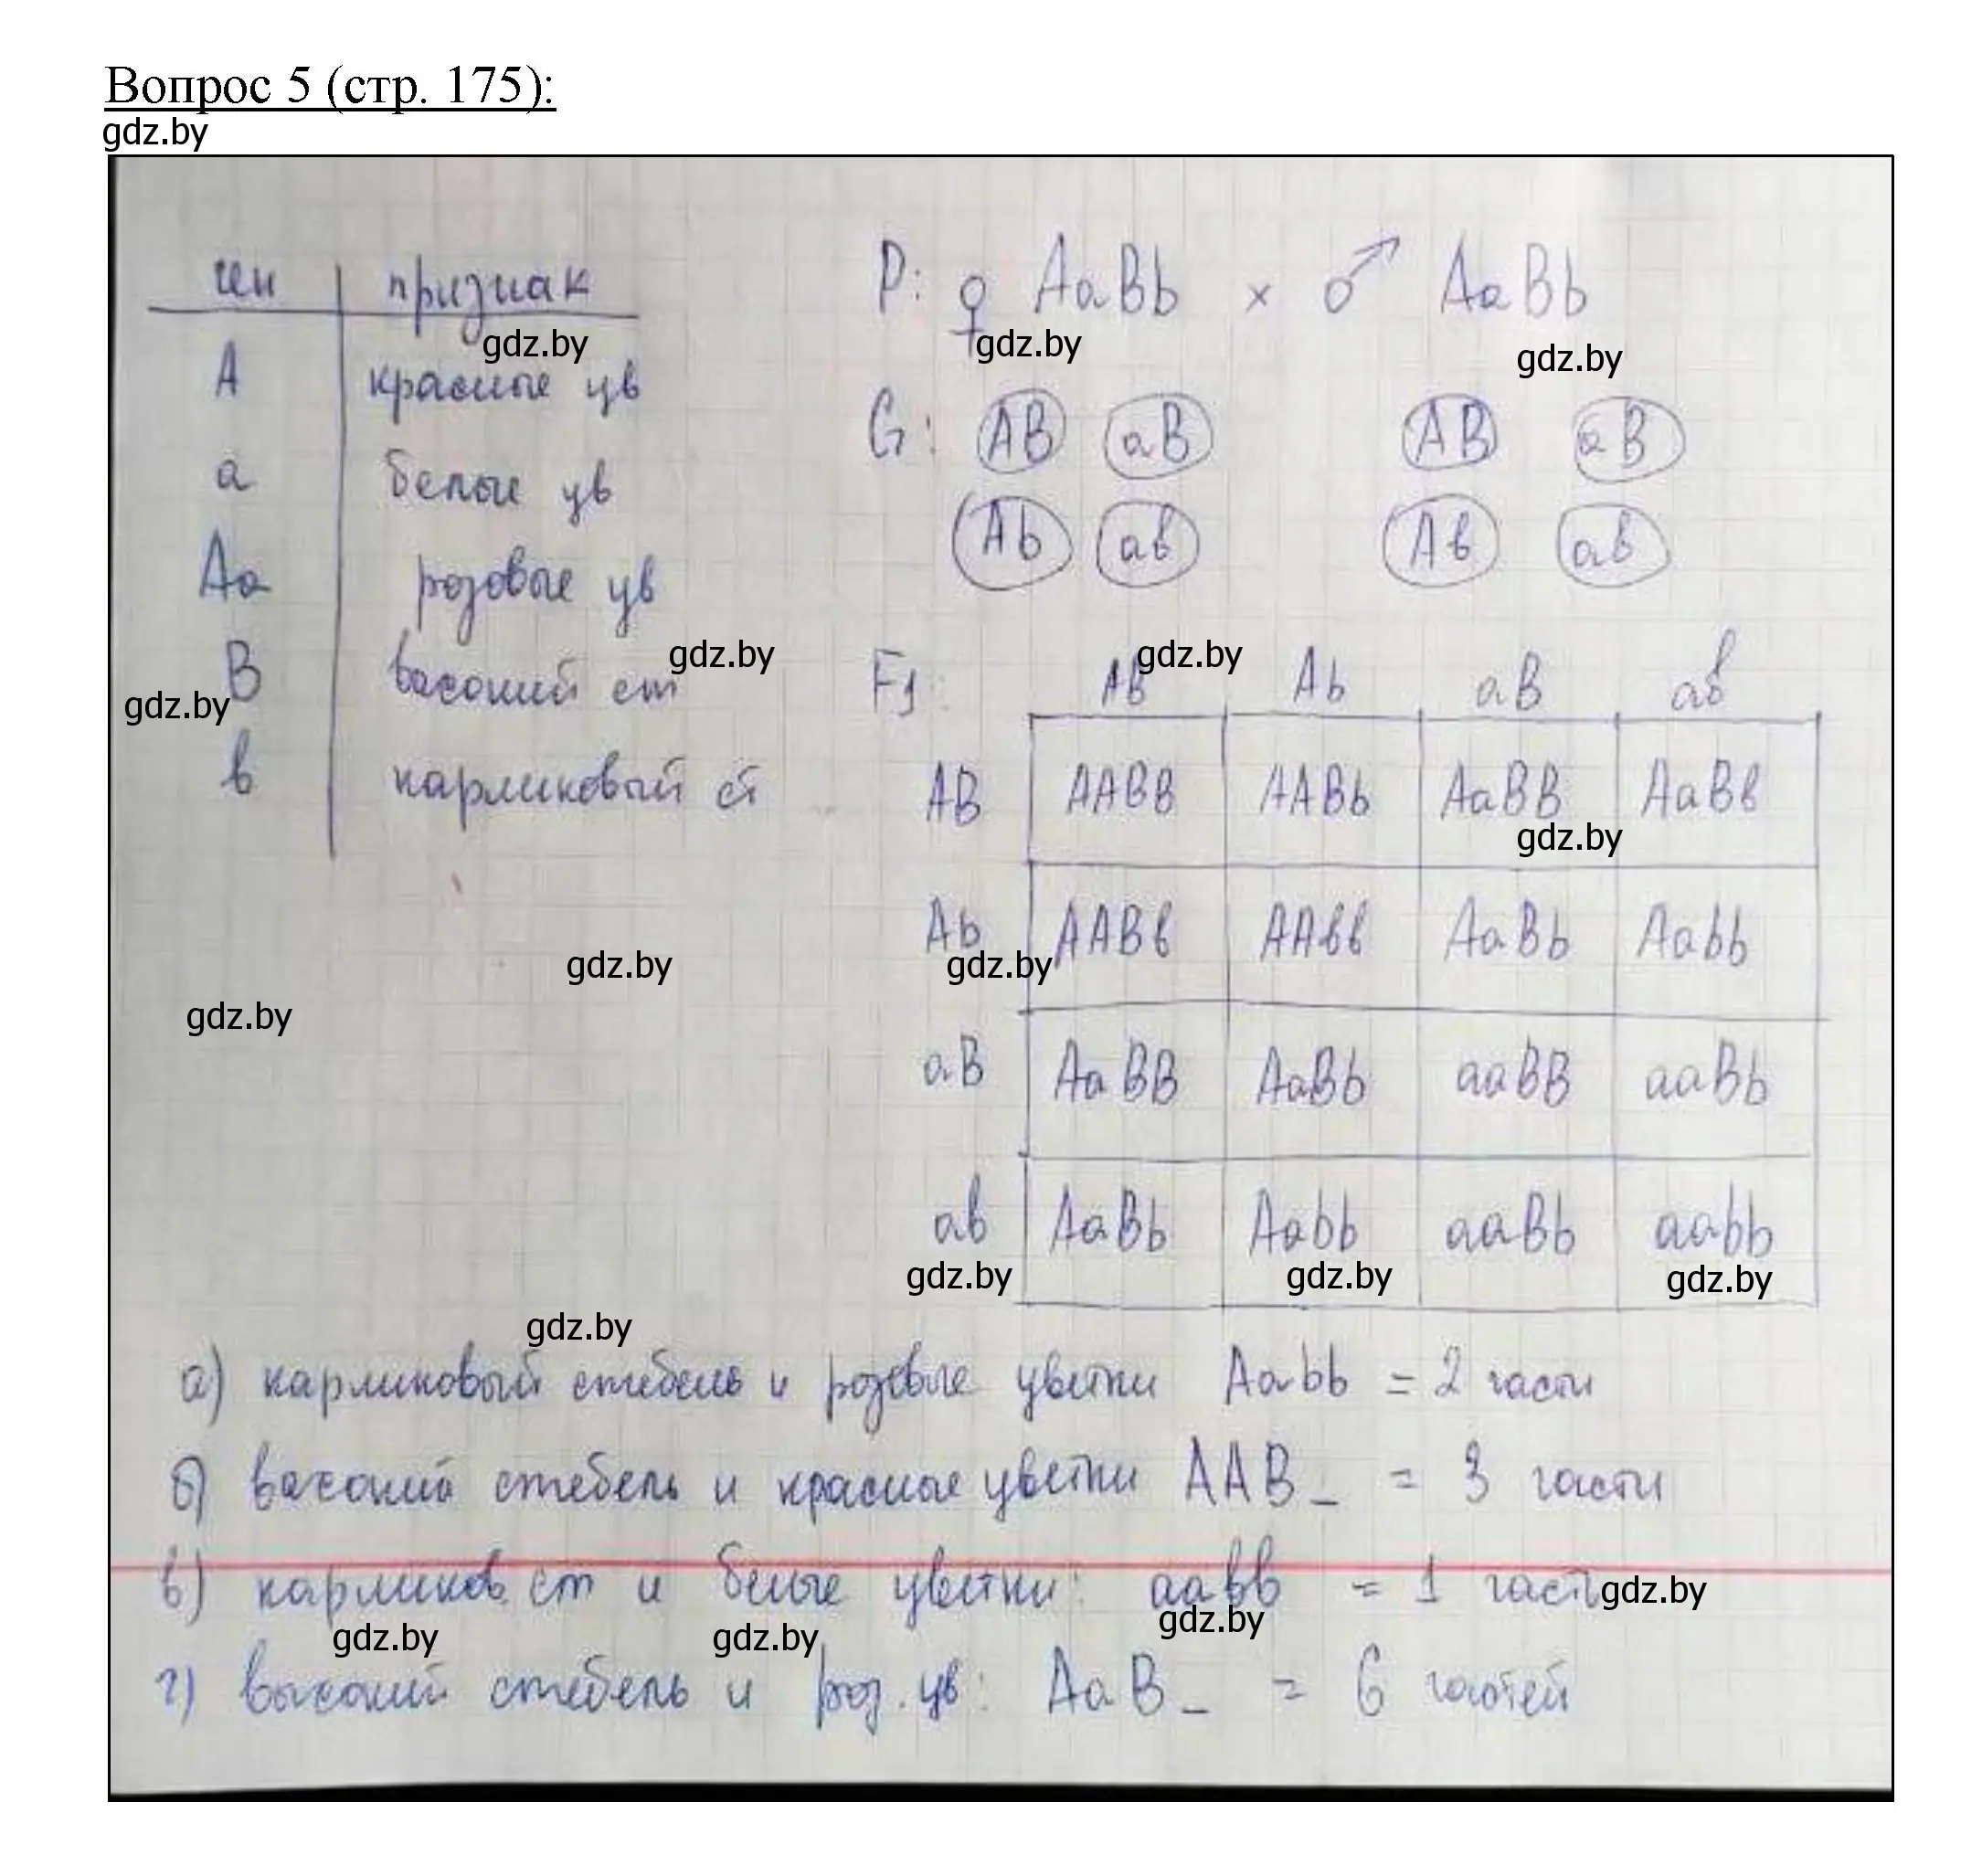 Вопрос 5 (стр. 175):
gdz.by
ген признак
gdz.by
А красные цв
а белые цв
Аа розовые цв
gdz.by
В высокий ст
gdz.by
в карликовый ст
gdz.by
gdz.by
P: ♀ AaBb × ♂ AaBb
gdz.by gdz.by
G: AB aB AB aB
Ab aв Aв aв
gdz.by
F1: AB Ab aB aв
AB AABB AABb AaBB AaBв
gdz.by
Ab AABв AAвв AaBb Aabb
gdz.by
aB AaBB AaBb aaBB aaBb
aв AaBb Aabb aaBb aabb
gdz.by gdz.by gdz.by
gdz.by
а) карликовый стебель и розовые цветки Aabb = 2 части
б) высокий стебель и красные цветки AAB_ = 3 части
в) карликов. ст и белые цветки: aaвв = 1 часть
gdz.by
gdz.by gdz.by gdz.by
г) высокий стебель и роз. цв: AaB_ = 6 частей